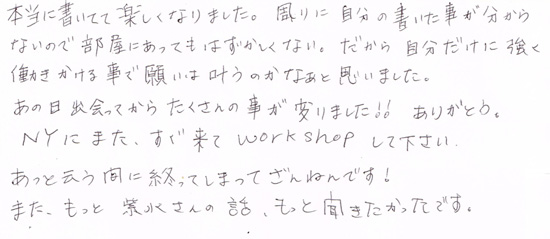 本当に書いてて楽しくなりました。周りに自分の書いた事が分から
ないので部屋にあってもはずかしくない。だから自分だけに強く
働きかける事で願いは叶うのかなあと思いました。
あの日出会ってからたくさんの事が変りました!! ありがとう。
NYにまた、すぐ来てworkshopして下さい.
あっと云う間に終ってしまってざんねんです!
また、もっと紫水さんの話、もっと聞きたかったです。